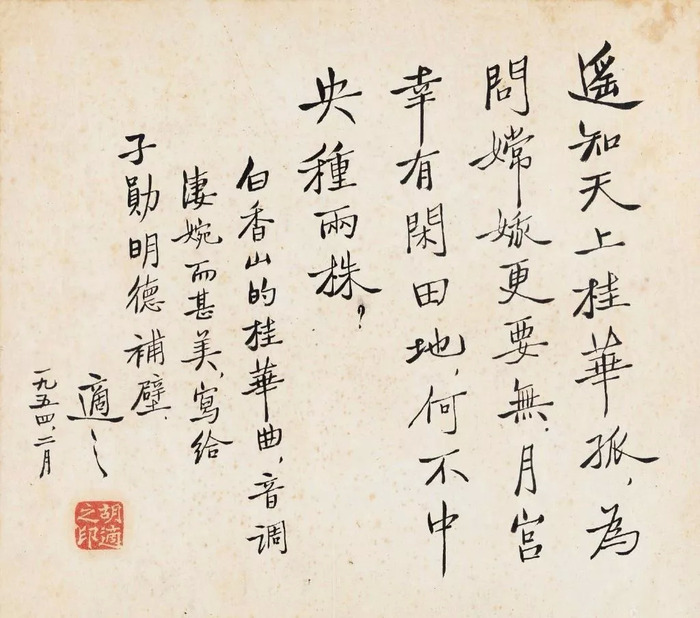 遥知天上桂華孤，為
問嫦娥更要無．月宮
幸有閑田地，何不中
央種兩株？
白香山的桂華曲，音調
淒婉而甚美，寫給
子勛明德補壁．
適之
一九五四．二月
胡適之印